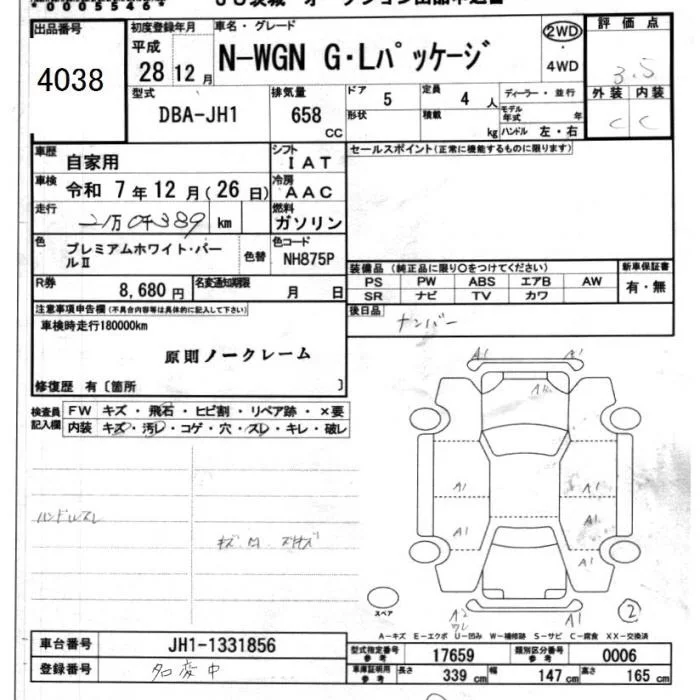 出品番号
4038
初度登録年月
平成
28 12月
車名・グレード
N-WGN G・Lパッケージ
2WD
・
4WD
評価点
3.5
外装 内装
C C
型式
DBA-JH1
排気量
658
CC
ドア 5
形状
定員 4 人
積載 kg
ディーラー・並行
モデル年式 年
ハンドル 左・右
車歴 自家用
シフト IAT
車検 令和 7年12月(26日)
冷房 AAC
走行 km
燃料 ガソリン
色 プレミアムホワイト・パールⅡ
色替
色コード NH875P
R券 8,680円
名変通知期限 月 日
セールスポイント(正常に機能するものに限ります)
装備品(純正品に限り○をつけてください)
PS PW ABS エアB AW
SR ナビ TV カワ
新車保証書
有・無
後日品 ナンバー
注意事項申告欄(不具合内容等は具体的に記入して下さい)
車検時走行180000km
原則ノークレーム
修復歴 有〔箇所 〕
検査員記入欄
FW キズ・飛石・ヒビ割・リペア跡・×要
内装 キズ・汚レ・コゲ・穴・スレ・キレ・破レ
ハンドルスレ
A1 A1
A1
A1 A1
A1 A1
A1
スペア
A2 A1
②
A-キズ E-エクボ U-凹み W-補修跡 S-サビ C-腐食 XX-交換済
車台番号 JH1-1331856
登録番号 名変中
型式指定番号参考 17659
類別区分番号参考 0006
車庫証明用参考 長さ 339cm 幅 147cm 高さ 165cm